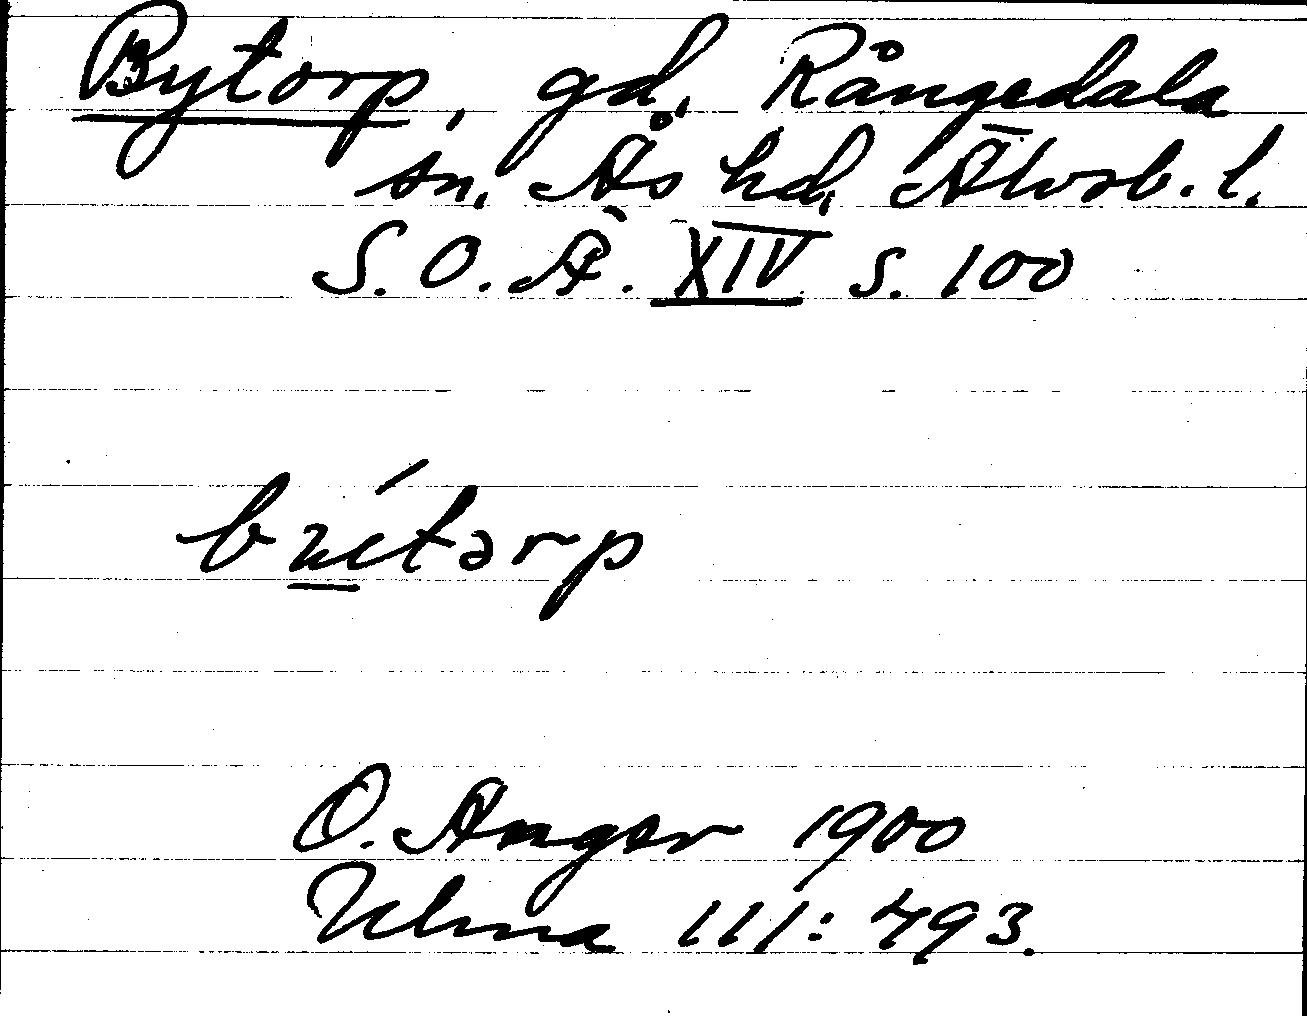 Bytorp, gd, Rångedala
sn, Ås hd, Älvsb. l.
S. O. Ä. XIV s. 100
bu̲ítərp
O. Anger 1900
Ulma 111: 493.